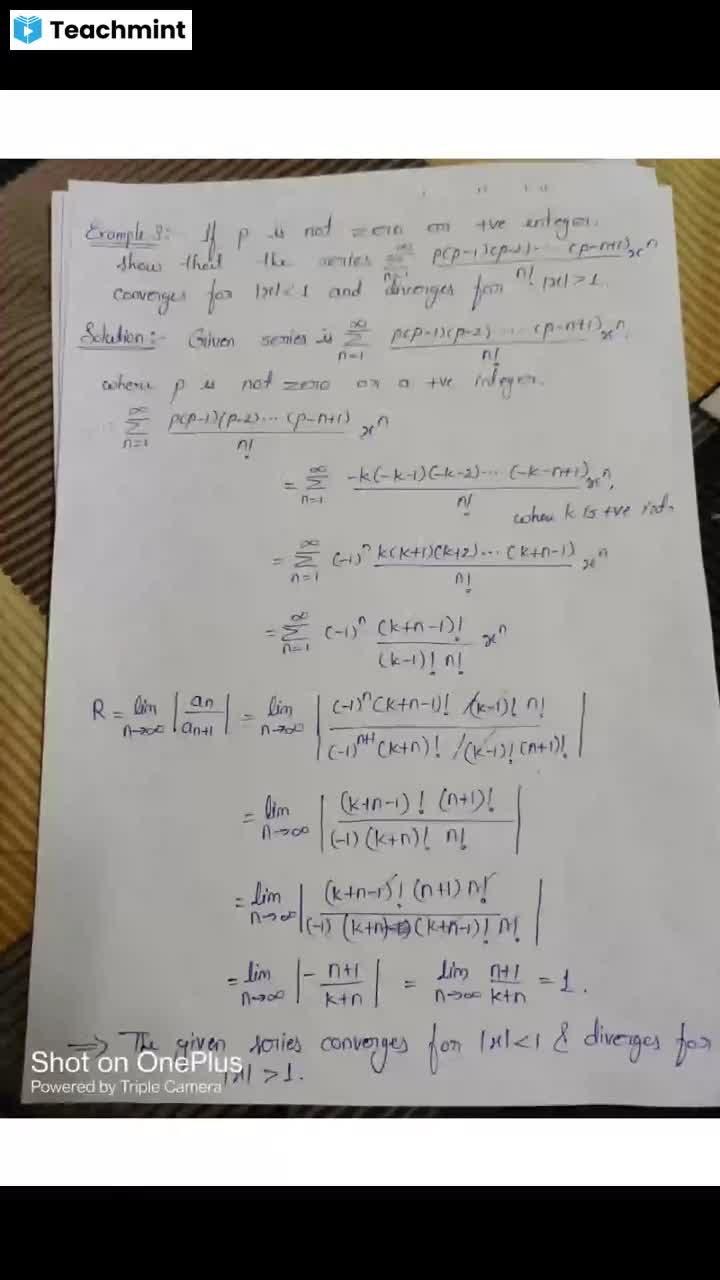 Teachmint
Example 3:- If p is not zero or +ve integer.
show that the series ∑_{n=1}^{∞} p(p-1)(p-2)···(p-n+1)/n! x^n
converges for |x|<1 and diverges for |x|>1.
Solution:- Given series is ∑_{n=1}^{∞} p(p-1)(p-2)····(p-n+1)/n! x^n,
where p is not zero or a +ve integer.
∑_{n=1}^{∞} p(p-1)(p-2)···(p-n+1)/n! x^n
= ∑_{n=1}^{∞} -k(-k-1)(-k-2)···(-k-n+1)/n! x^n,
when k is +ve int.
= ∑_{n=1}^{∞} (-1)^n k(k+1)(k+2)···(k+n-1)/n! x^n
= ∑_{n=1}^{∞} (-1)^n (k+n-1)!/(k-1)! n! x^n
R = lim_{n→∞} |a_n/a_{n+1}| = lim_{n→∞} |(-1)^n (k+n-1)! (k-1)! n!/(-1)^{n+1} (k+n)! (k-1)! (n+1)!|
= lim_{n→∞} |(k+n-1)! (n+1)!/(-1)(k+n)! n!|
= lim_{n→∞} |(k+n-1)! (n+1) n!/(-1)(k+n)(k+n-1)! n!|
= lim_{n→∞} |- n+1/k+n| = lim_{n→∞} n+1/k+n = 1.
⇒ The given series converges for |x|<1 & diverges for
|x|>1.
Shot on OnePlus
Powered by Triple Camera